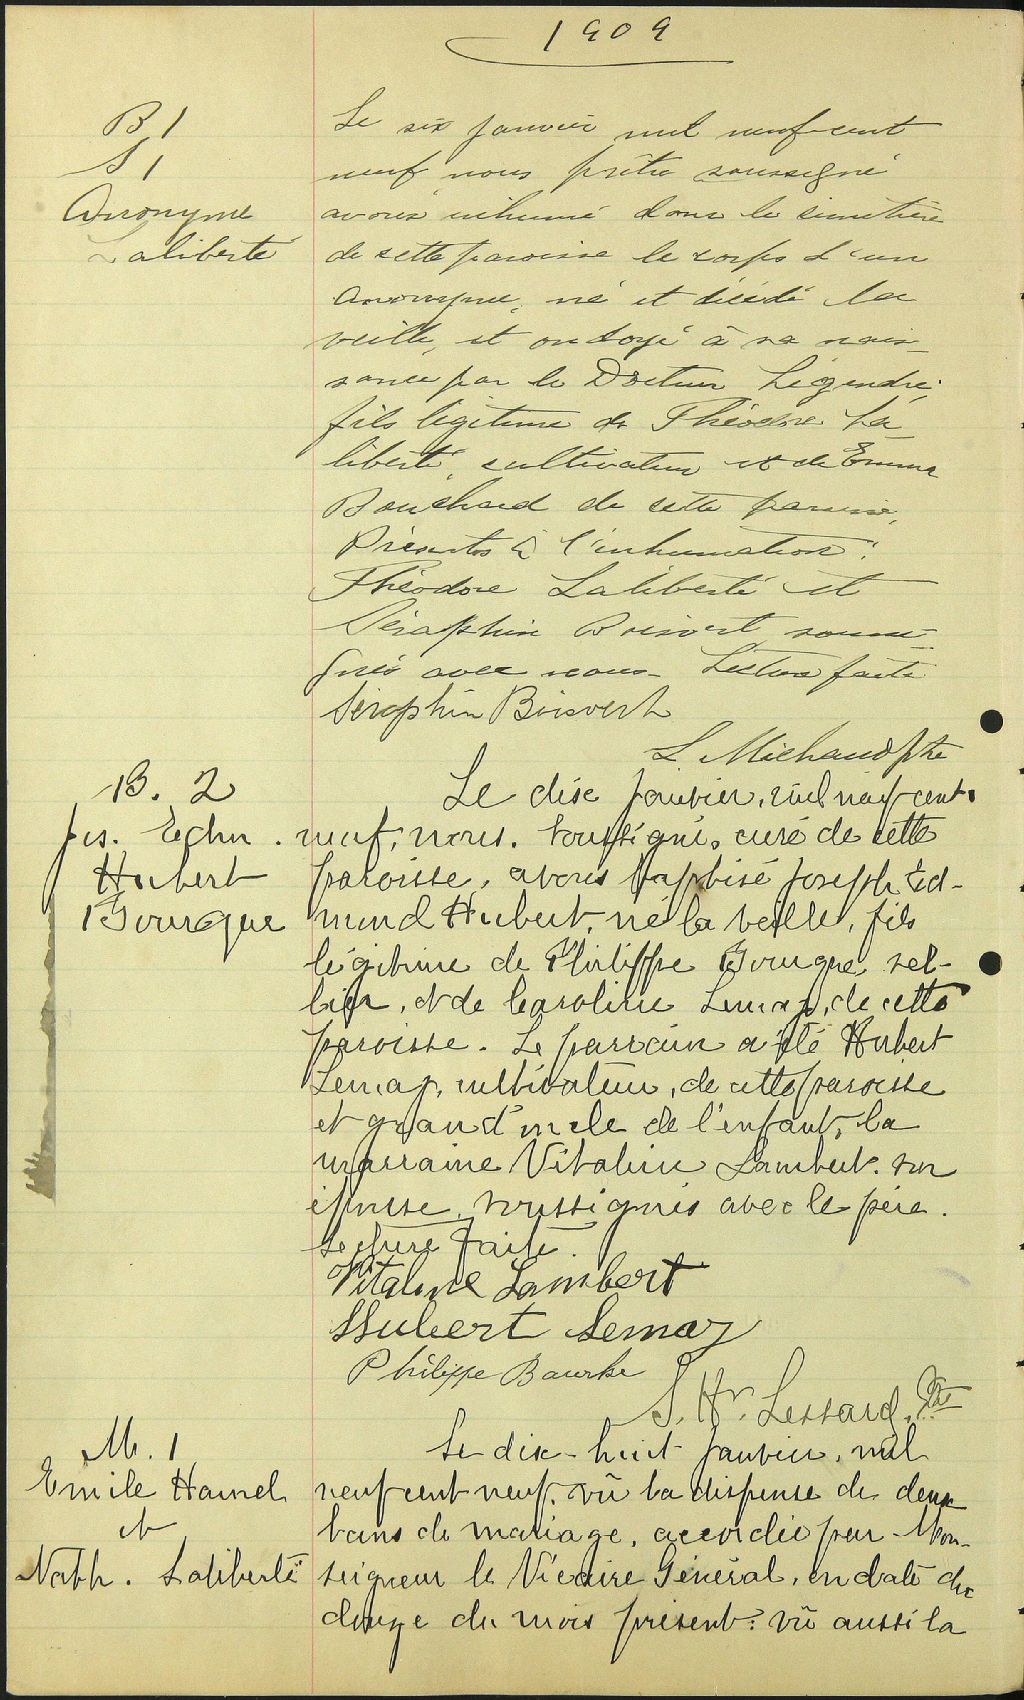 1909
B 1
S 1
Anonyme
Laliberté
Le six janvier mil neuf-cent
neuf nous prêtre soussigné
avons inhumé dans le simetière
de cette paroisse le corps d'un
anonyme, né et décédé la
veille, et ondoyé à sa nais-
sance par le Docteur Légendre,
fils légitime de Théodore La-
liberté, cultivateur et de Emma
Bouchard de cette paroisse,
Présents à l'inhumation:
Théodore Laliberté et
Séraphin Boisvert sousi-
gnés avec nous. Lecture faite
Séraphin Boisvert
L. Michaud ptre
B. 2
Jos. Edm.
Hubert
Bourque
Le dix janvier, mil neuf cent
neuf, nous, soussigné, curé de cette
paroisse, avons baptisé Joseph Ed-
mond Hubert, né la veille, fils
légitime de Philippe Bourque, sel-
lier, et de Caroline Lemay, de cette
paroisse. Le parrain a été Hubert
Lemay, cultivateur, de cette paroisse
et grand'
de l'enfant, la
marraine Vitaline Lambert, son
épouse, soussignés avec le père.
Lecture faite.
Vitaline Lambert
Hubert Lemay
Philippe Bourke
Lessard, Ptre
M. 1
Emile Hamel
et
Nath. Laliberté
Le dix-huit janvier, mil
neuf cent neuf, vû la dispense de deux
bans de mariage, accordée par Mon-
seigneur le Vicaire Général, en date du
douze du mois présent: vû aussi la